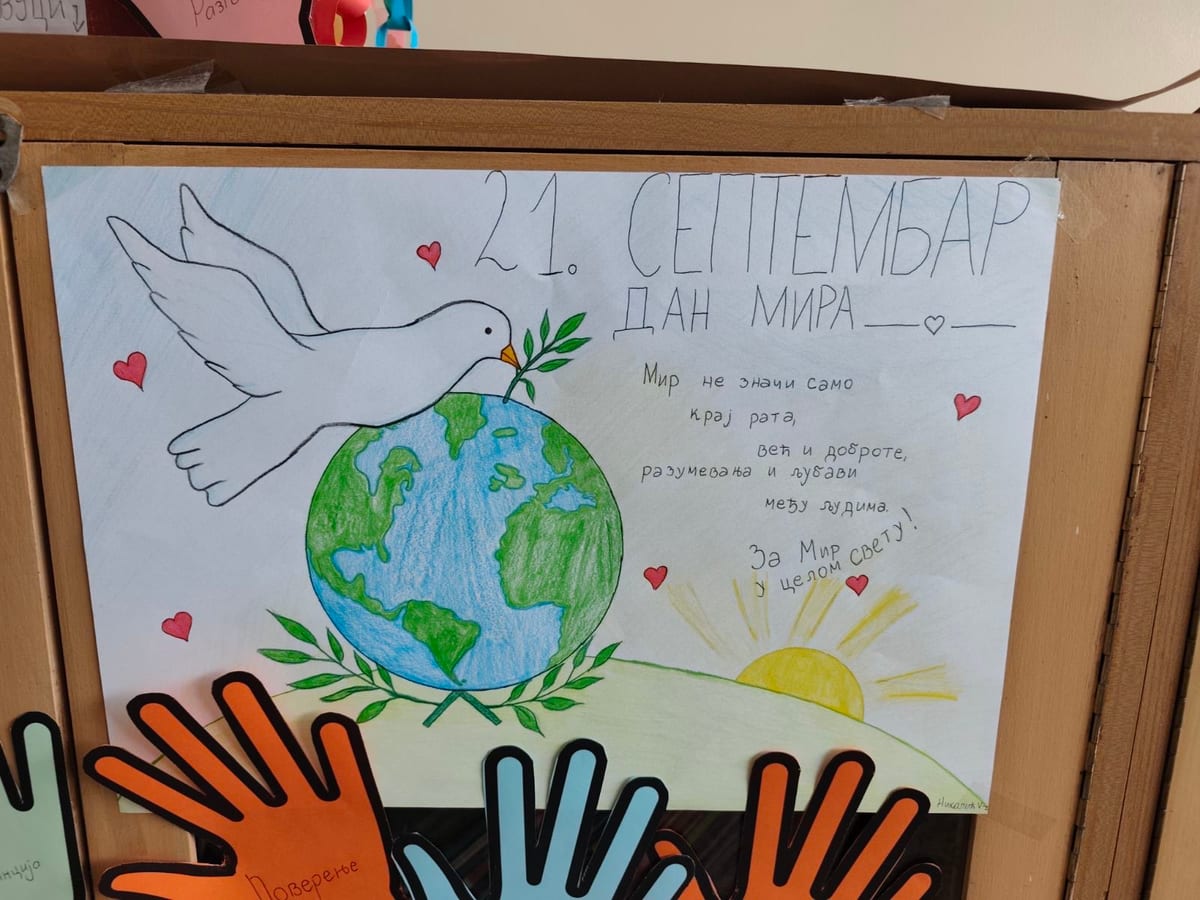 21. СЕПТЕМБАР
ДАН МИРА
Мир не значи само
крај рата,
већ и доброте,
разумевања и љубави
међу људима.
За Мир
у целом свету!
Поверење